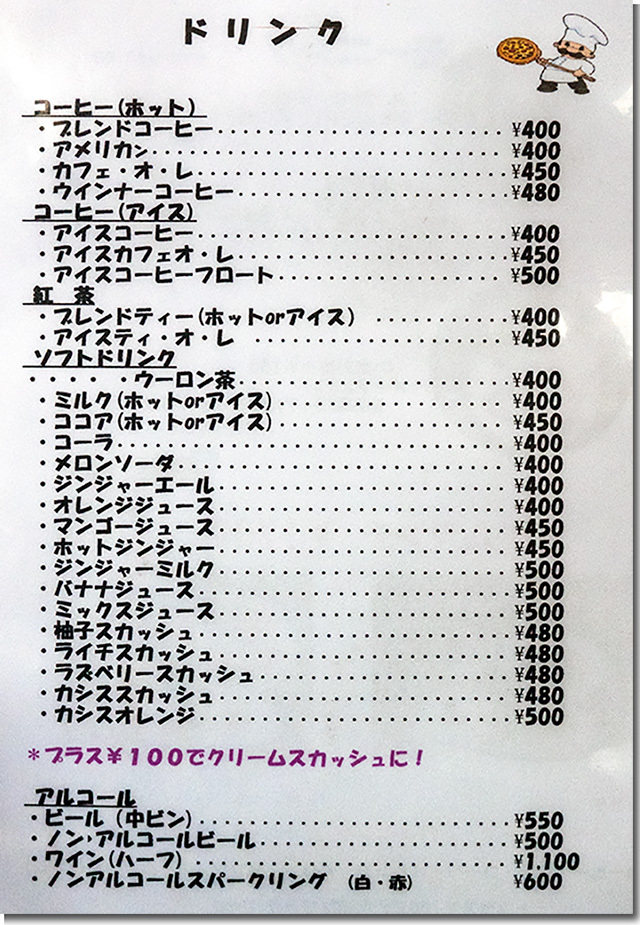 ドリンク
コーヒー(ホット)
・ブレンドコーヒー..............................¥400
・アメリカン....................................¥400
・カフェ・オ・レ................................¥450
・ウインナーコーヒー............................¥480
コーヒー(アイス)
・アイスコーヒー................................¥400
・アイスカフェオ・レ............................¥450
・アイスコーヒーフロート........................¥500
紅 茶
・ブレンドティー(ホットorアイス) ..........¥400
・アイスティ・オ・レ ......................¥450
ソフトドリンク
・・・・ ・ウーロン茶..........................¥400
・ミルク(ホットorアイス)......................¥400
・ココア(ホットorアイス)......................¥450
・コーラ........................................¥400
・メロンソーダ..................................¥400
・ジンジャーエール..............................¥400
・オレンジジュース..............................¥400
・マンゴージュース..............................¥450
・ホットジンジャー..............................¥450
・ジンジャーミルク..............................¥500
・バナナジュース................................¥500
・ミックスジュース..............................¥500
・柚子スカッシュ................................¥480
・ライチスカッシュ..............................¥480
・ラズベリースカッシュ..........................¥480
・カシススカッシュ..............................¥480
・カシスオレンジ................................¥500
*プラス¥100でクリームスカッシュに!
アルコール
・ビール (中ビン)..............................¥550
・ノン・アルコールビール........................¥500
・ワイン(ハーフ) ............................¥1.100
・ノンアルコールスパークリング (白・赤) ¥600